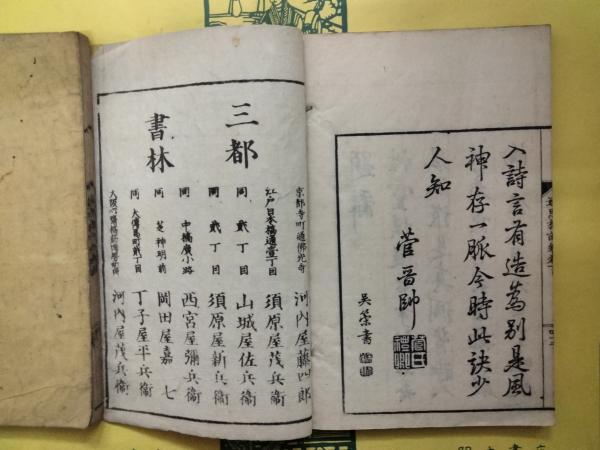 入詩言有造蔦別是風
神存一脈今時此訣少
人知
菅晋帥
呉策書
三都
書林
京都寺町通佛光寺
河内屋藤四郎
江戸日本橋通壹丁目
須原屋茂兵衛
同貳丁目
山城屋佐兵衛
同貳丁目
須原屋新兵衛
同中橋廣小路
西宮屋彌兵衛
同芝神明前
岡田屋嘉七
同大傳馬町貳丁目
丁子屋平兵衛
大阪心齋橋筋博勞町角
河内屋茂兵衛